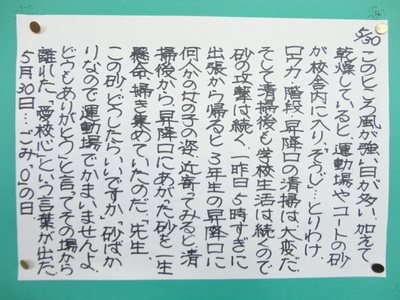 5/30
このところ風が強い日が多い。加えて
乾燥していると、運動場やコートの砂
が校舎内に入り、そうじ、とりわけ
ロウカ、階段、昇降口の清掃は大変だ。
そして清掃後も学校生活は続くので
砂の攻撃は続く。一昨日5時すぎに
出張から帰ると3年生の昇降口に
何人かの女の子の姿、近寄ってみると清
掃後から、昇降口にあがった砂を一生
懸命、掃き集めていたのだ。「先生、
この砂、どうしたらいいですか」「砂ばか
りなので運動場でかまいませんよ
どうもありがとう」と言ってその場から
離れた。「愛校心」という言葉が出た
5月30日…ごみ“0”の日